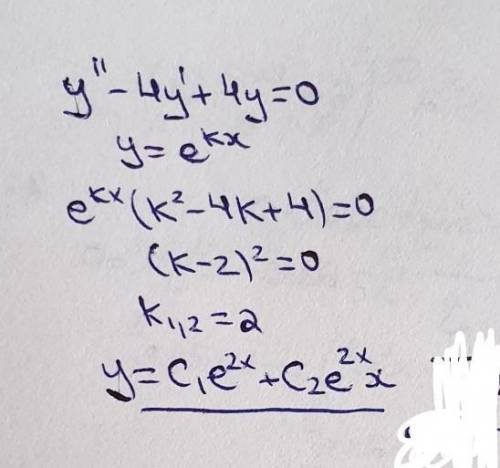 y'' - 4y' + 4y = 0
y = e^{kx}
e^{kx}(k² - 4k + 4) = 0
(k - 2)² = 0
k_{1,2} = 2
y = C₁e^{2x} + C₂e^{2x}x